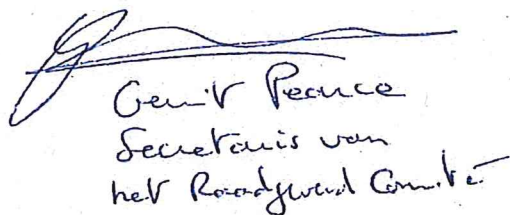 Gerrit Pearce
Secretaris van
het Raadgevend Comité